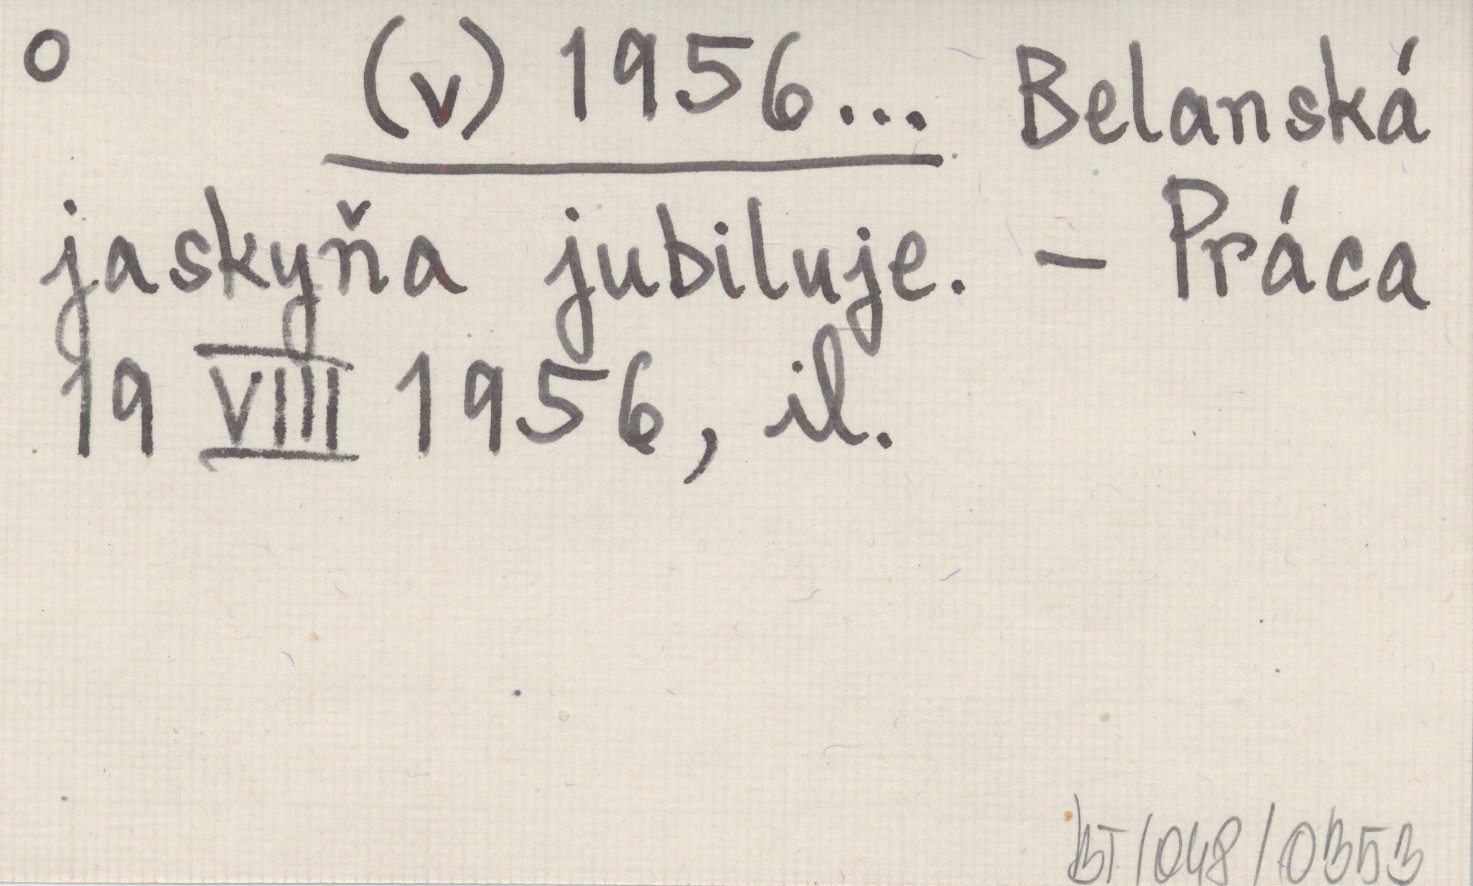 o (v) 1956... Belanská
jaskyňa jubiluje. – Práca
19 VIII 1956, il.
BT/048/0353